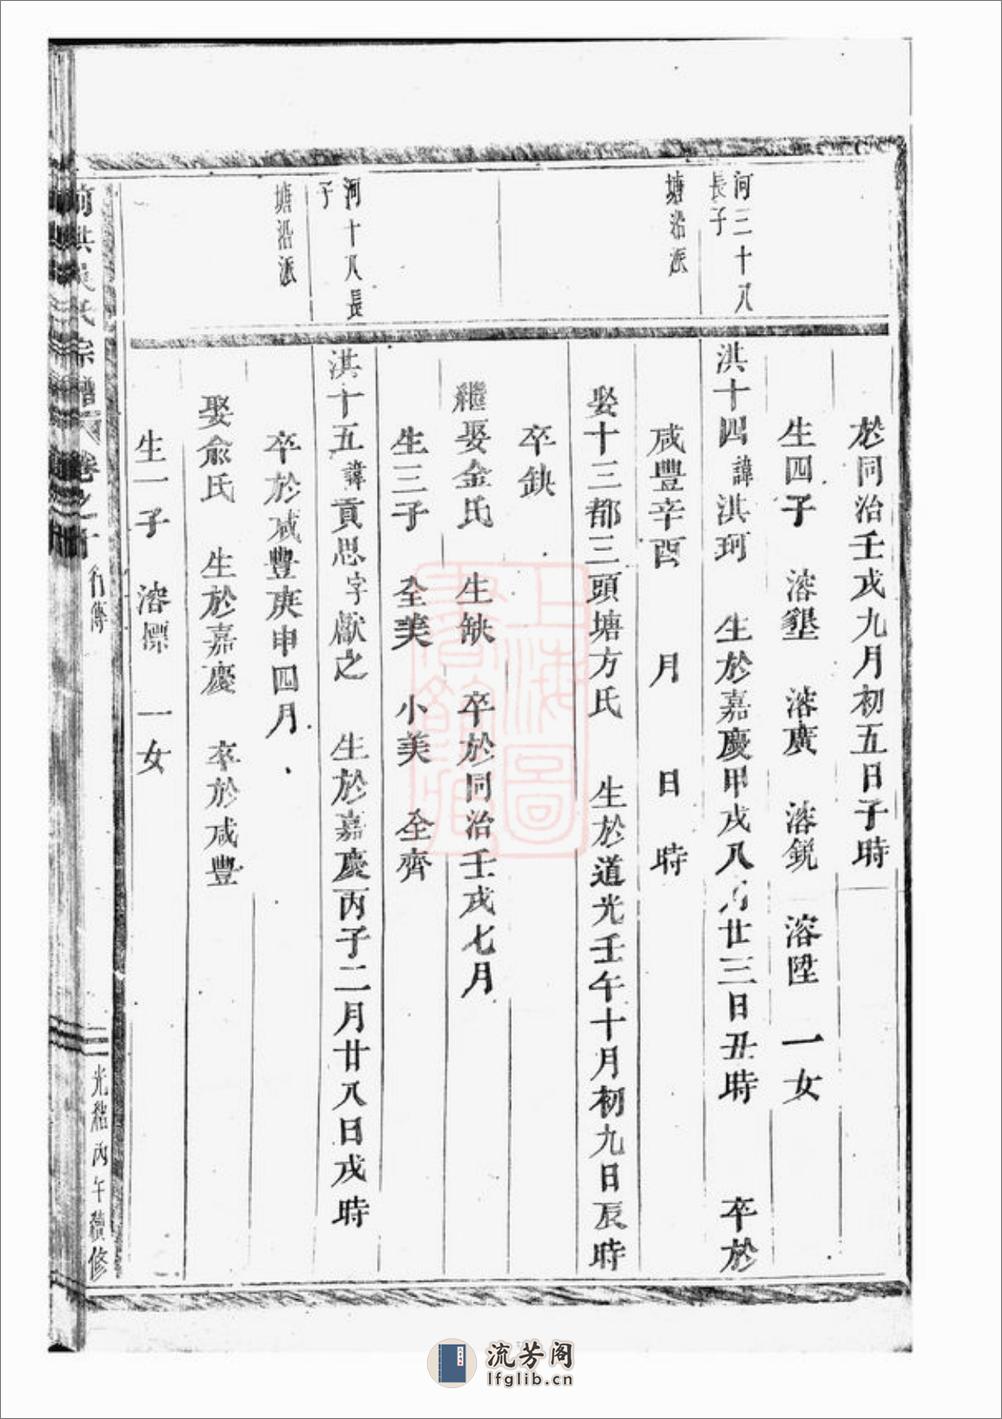 河三十八
長子
塘沿派
河十八長
子
塘沿派
於同治壬戌九月初五日子時
生四子 溶墾 溶廣 溶銳 溶陞 一女
洪十四諱洪珂 生於嘉慶甲戌八月廿三日丑時 卒於
咸豐辛酉 月 日 時
娶十三都三頭塘方氏 生於道光壬午十月初九日辰時
卒缺
繼娶金氏 生缺 卒於同治壬戌七月
生三子 全美 小美 全齊
洪十五諱貢思字獻之 生於嘉慶丙子二月廿八日戌時
卒於咸豐庚申四月
娶俞氏 生於嘉慶 卒於咸豐
生一子 溶標 一女
洪吳氏宗譜 卷之十 行傳
光緒丙午續修
上海圖書館藏
流芳阁
lfglib.cn